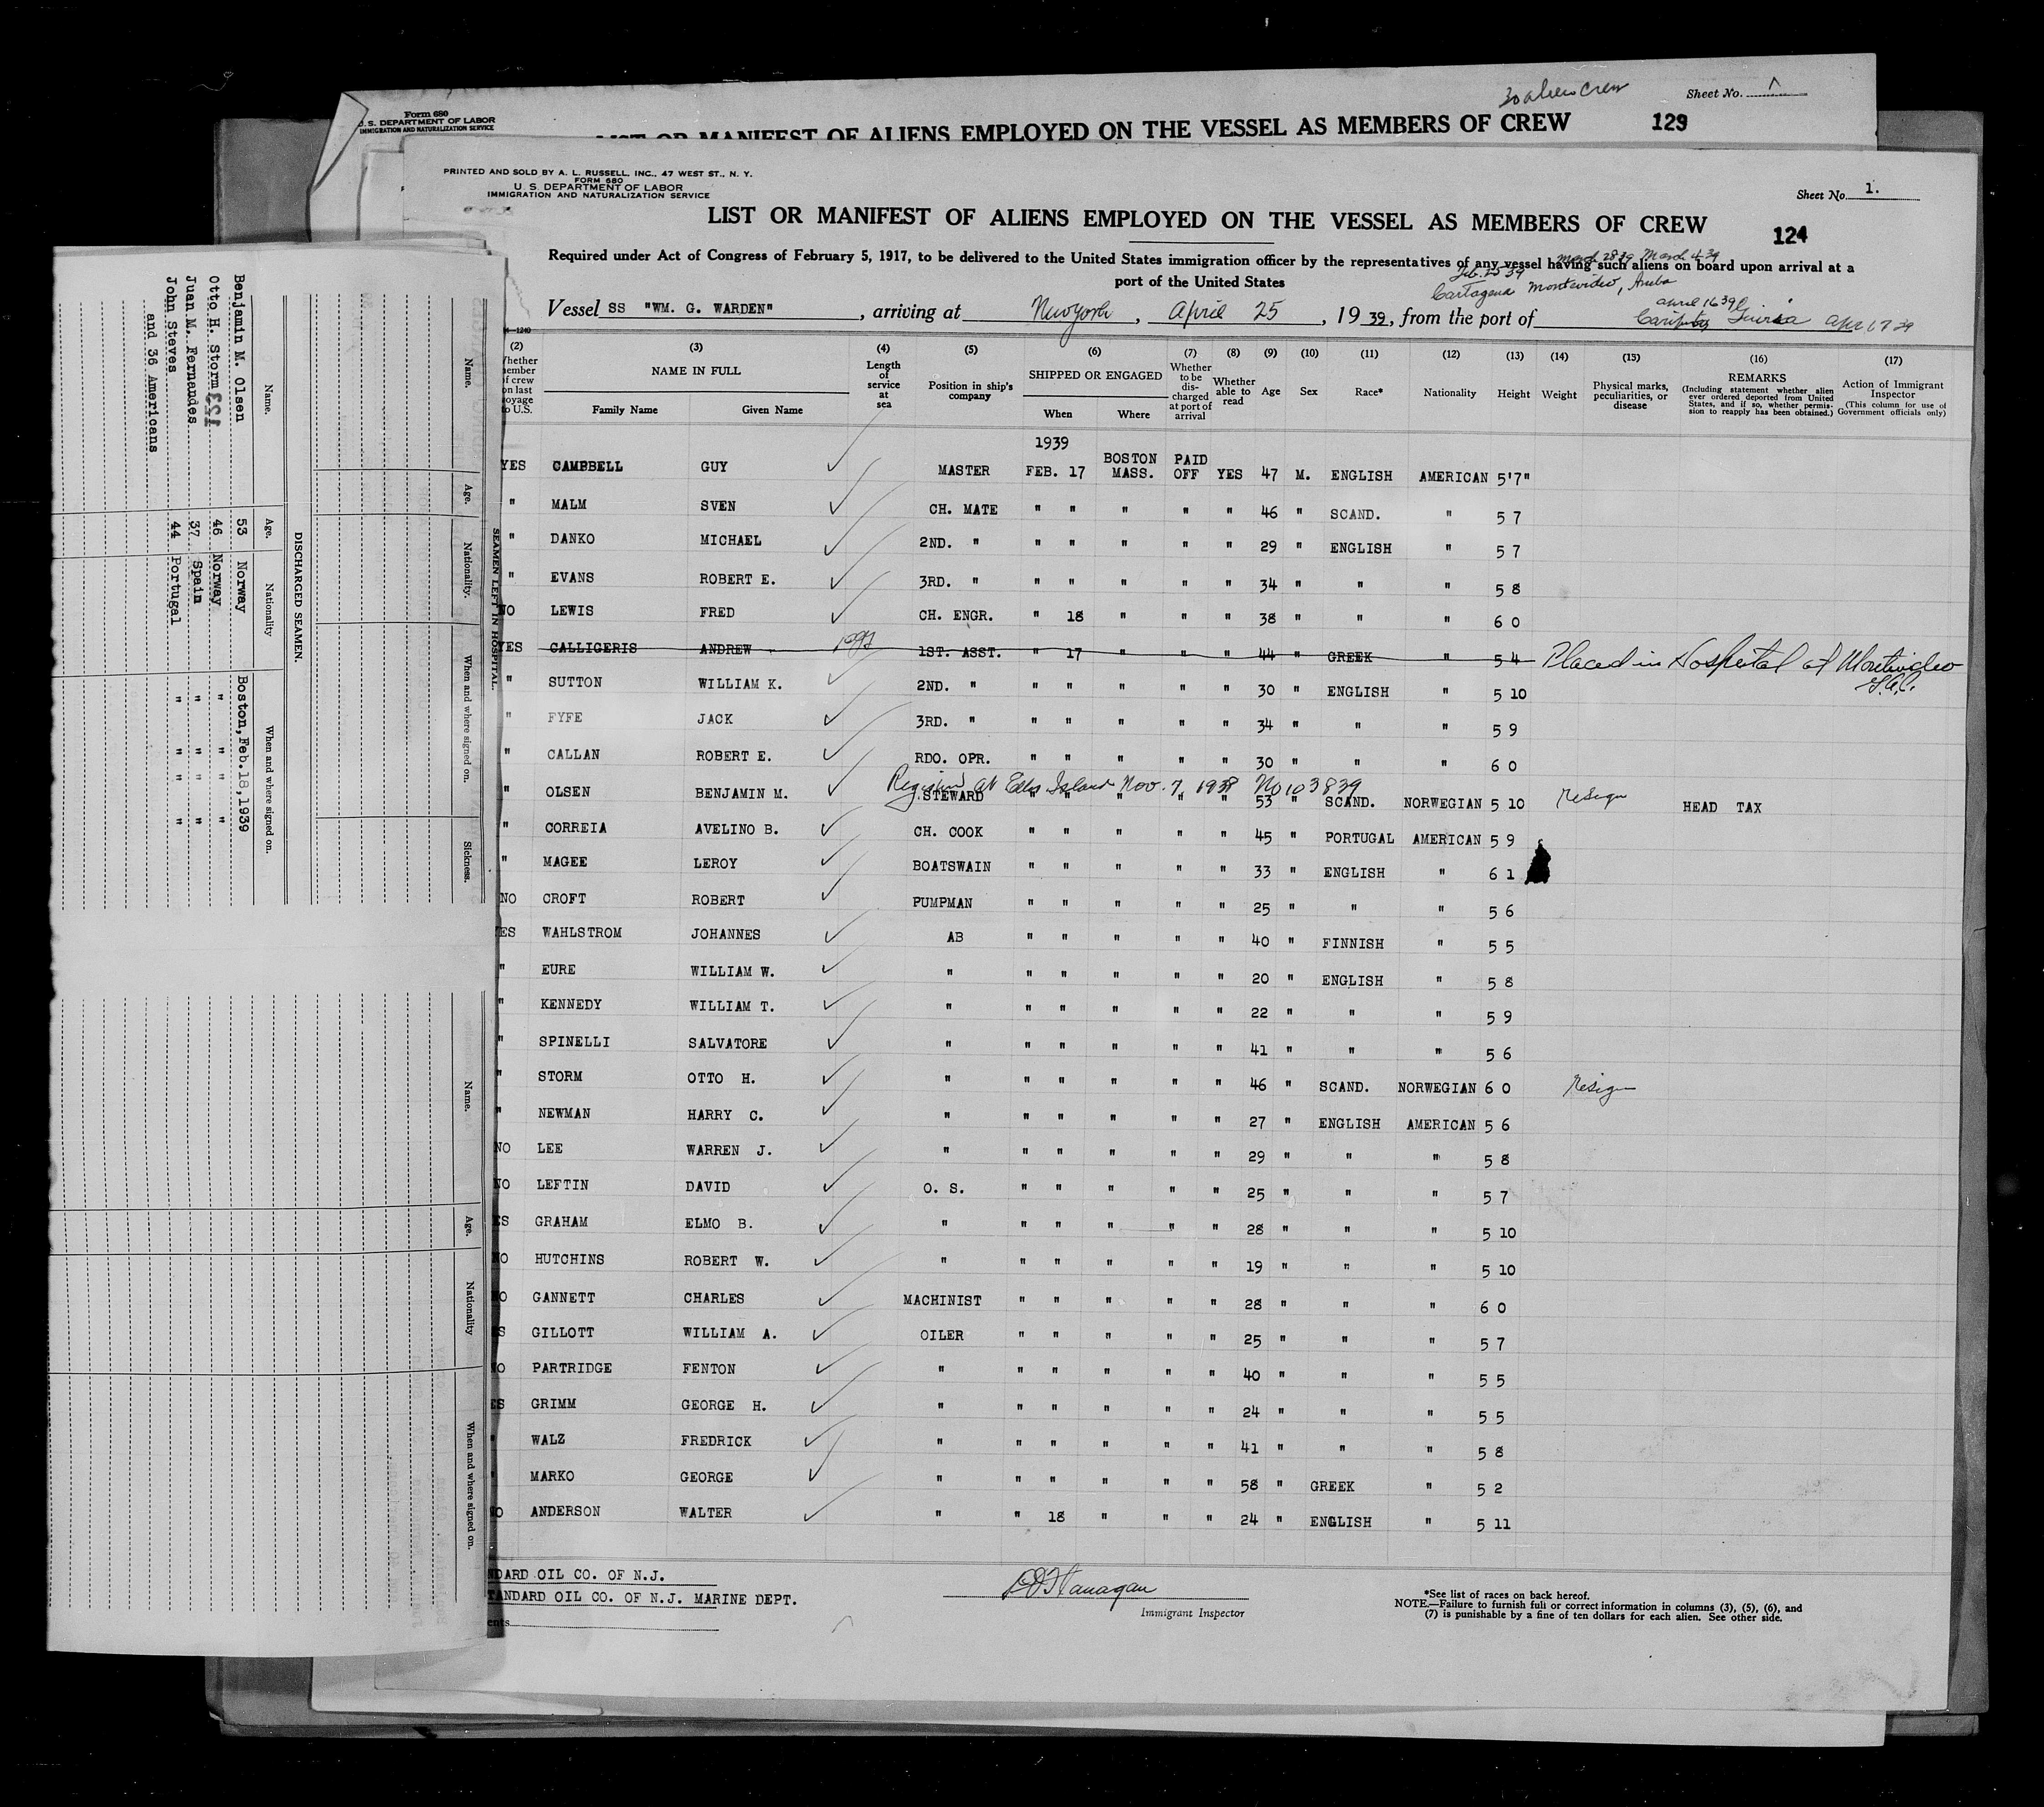 30 alien crew
Sheet No. 1
Form 680
U.S. DEPARTMENT OF LABOR
IMMIGRATION AND NATURALIZATION SERVICE
LIST OR MANIFEST OF ALIENS EMPLOYED ON THE VESSEL AS MEMBERS OF CREW 129
PRINTED AND SOLD BY A. L. RUSSELL, INC., 47 WEST ST., N. Y.
FORM 680
U. S. DEPARTMENT OF LABOR
IMMIGRATION AND NATURALIZATION SERVICE
Sheet No. 1.
LIST OR MANIFEST OF ALIENS EMPLOYED ON THE VESSEL AS MEMBERS OF CREW
124
Required under Act of Congress of February 5, 1917, to be delivered to the United States immigration officer by the representatives of any vessel having such aliens on board upon arrival at a
port of the United States
Feb. 25 39 March 28 39 March 4 39
Cartagena Montevideo, Aruba
april 16 39
Vessel SS "WM. G. WARDEN", arriving at New York, April 25, 1939, from the port of Caripito Guiria Apr 17 39
(2) (3) (4) (5) (6) (7) (8) (9) (10) (11) (12) (13) (14) (15) (16) (17)
Whether member of crew on last voyage to U.S.
NAME IN FULL
Family Name Given Name
Length of service at sea
Position in ship's company
SHIPPED OR ENGAGED
When Where
Whether to be discharged at port of arrival
Whether able to read
Age Sex Race* Nationality Height Weight
Physical marks, peculiarities, or disease
REMARKS
(Including statement whether alien ever ordered deported from United States, and if so, whether permission to reapply has been obtained.)
Action of Immigrant Inspector
(This column for use of Government officials only)
1939
YES CAMPBELL GUY MASTER FEB. 17 BOSTON MASS. PAID OFF YES 47 M. ENGLISH AMERICAN 5'7"
" MALM SVEN CH. MATE " " " " " 46 " SCAND. " 5 7
" DANKO MICHAEL 2ND. " " " " " " 29 " ENGLISH " 5 7
" EVANS ROBERT E. 3RD. " " " " " " 34 " " " 5 8
NO LEWIS FRED CH. ENGR. " 18 " " " 38 " " " 6 0
YES CALLIGERIS ANDREW 1ST. ASST. " 17 " " " 44 " GREEK " 5 4 Placed in Hospital at Montevideo
" SUTTON WILLIAM K. 2ND. " " " " " " 30 " ENGLISH " 5 10
" FYFE JACK 3RD. " " " " " " 34 " " " 5 9
" CALLAN ROBERT E. RDO. OPR. " " " " " 30 " " " 6 0
Register at Ellis Island Nov. 7, 1938 No 103839
" OLSEN BENJAMIN M. STEWARD " " " " " 53 " SCAND. NORWEGIAN 5 10 resign HEAD TAX
" CORREIA AVELINO B. CH. COOK " " " " " 45 " PORTUGAL AMERICAN 5 9
" MAGEE LEROY BOATSWAIN " " " " " 33 " ENGLISH " 6 1
NO CROFT ROBERT PUMPMAN " " " " " 25 " " " 5 6
YES WAHLSTROM JOHANNES AB " " " " " 40 " FINNISH " 5 5
" EURE WILLIAM W. " " " " " " 20 " ENGLISH " 5 8
" KENNEDY WILLIAM T. " " " " " " 22 " " " 5 9
" SPINELLI SALVATORE " " " " " " 41 " " " 5 6
" STORM OTTO H. " " " " " " 46 " SCAND. NORWEGIAN 6 0 resign
" NEWMAN HARRY C. " " " " " " 27 " ENGLISH AMERICAN 5 6
NO LEE WARREN J. " " " " " " 29 " " " 5 8
NO LEFTIN DAVID O. S. " " " " " 25 " " " 5 7
ES GRAHAM ELMO B. " " " " " " 28 " " " 5 10
NO HUTCHINS ROBERT W. " " " " " " 19 " " " 5 10
NO GANNETT CHARLES MACHINIST " " " " " 28 " " " 6 0
S GILLOTT WILLIAM A. OILER " " " " " 25 " " " 5 7
O PARTRIDGE FENTON " " " " " " 40 " " " 5 5
ES GRIMM GEORGE H. " " " " " " 24 " " " 5 5
" WALZ FREDRICK " " " " " " 41 " " " 5 8
" MARKO GEORGE " " " " " " 58 " GREEK " 5 2
NO ANDERSON WALTER " " 18 " " " 24 " ENGLISH " 5 11
NDARD OIL CO. OF N.J.
TANDARD OIL CO. OF N.J. MARINE DEPT.
ents
Flanagan
Immigrant Inspector
*See list of races on back hereof.
NOTE.—Failure to furnish full or correct information in columns (3), (5), (6), and
(7) is punishable by a fine of ten dollars for each alien. See other side.
SEAMEN LEFT IN HOSPITAL.
Name. Age. Nationality. When and where signed on. Sickness.
DISCHARGED SEAMEN.
Name. Age. Nationality When and where signed on.
Benjamin M. Olsen 53 Norway Boston, Feb. 18, 1939
Otto H. Storm 46 Norway " " " "
123
Juan M. Fernandes 37 Spain " " " "
John Steves 44 Portugal " " " "
and 36 Americans
Name. Age. Nationality When and where signed on.